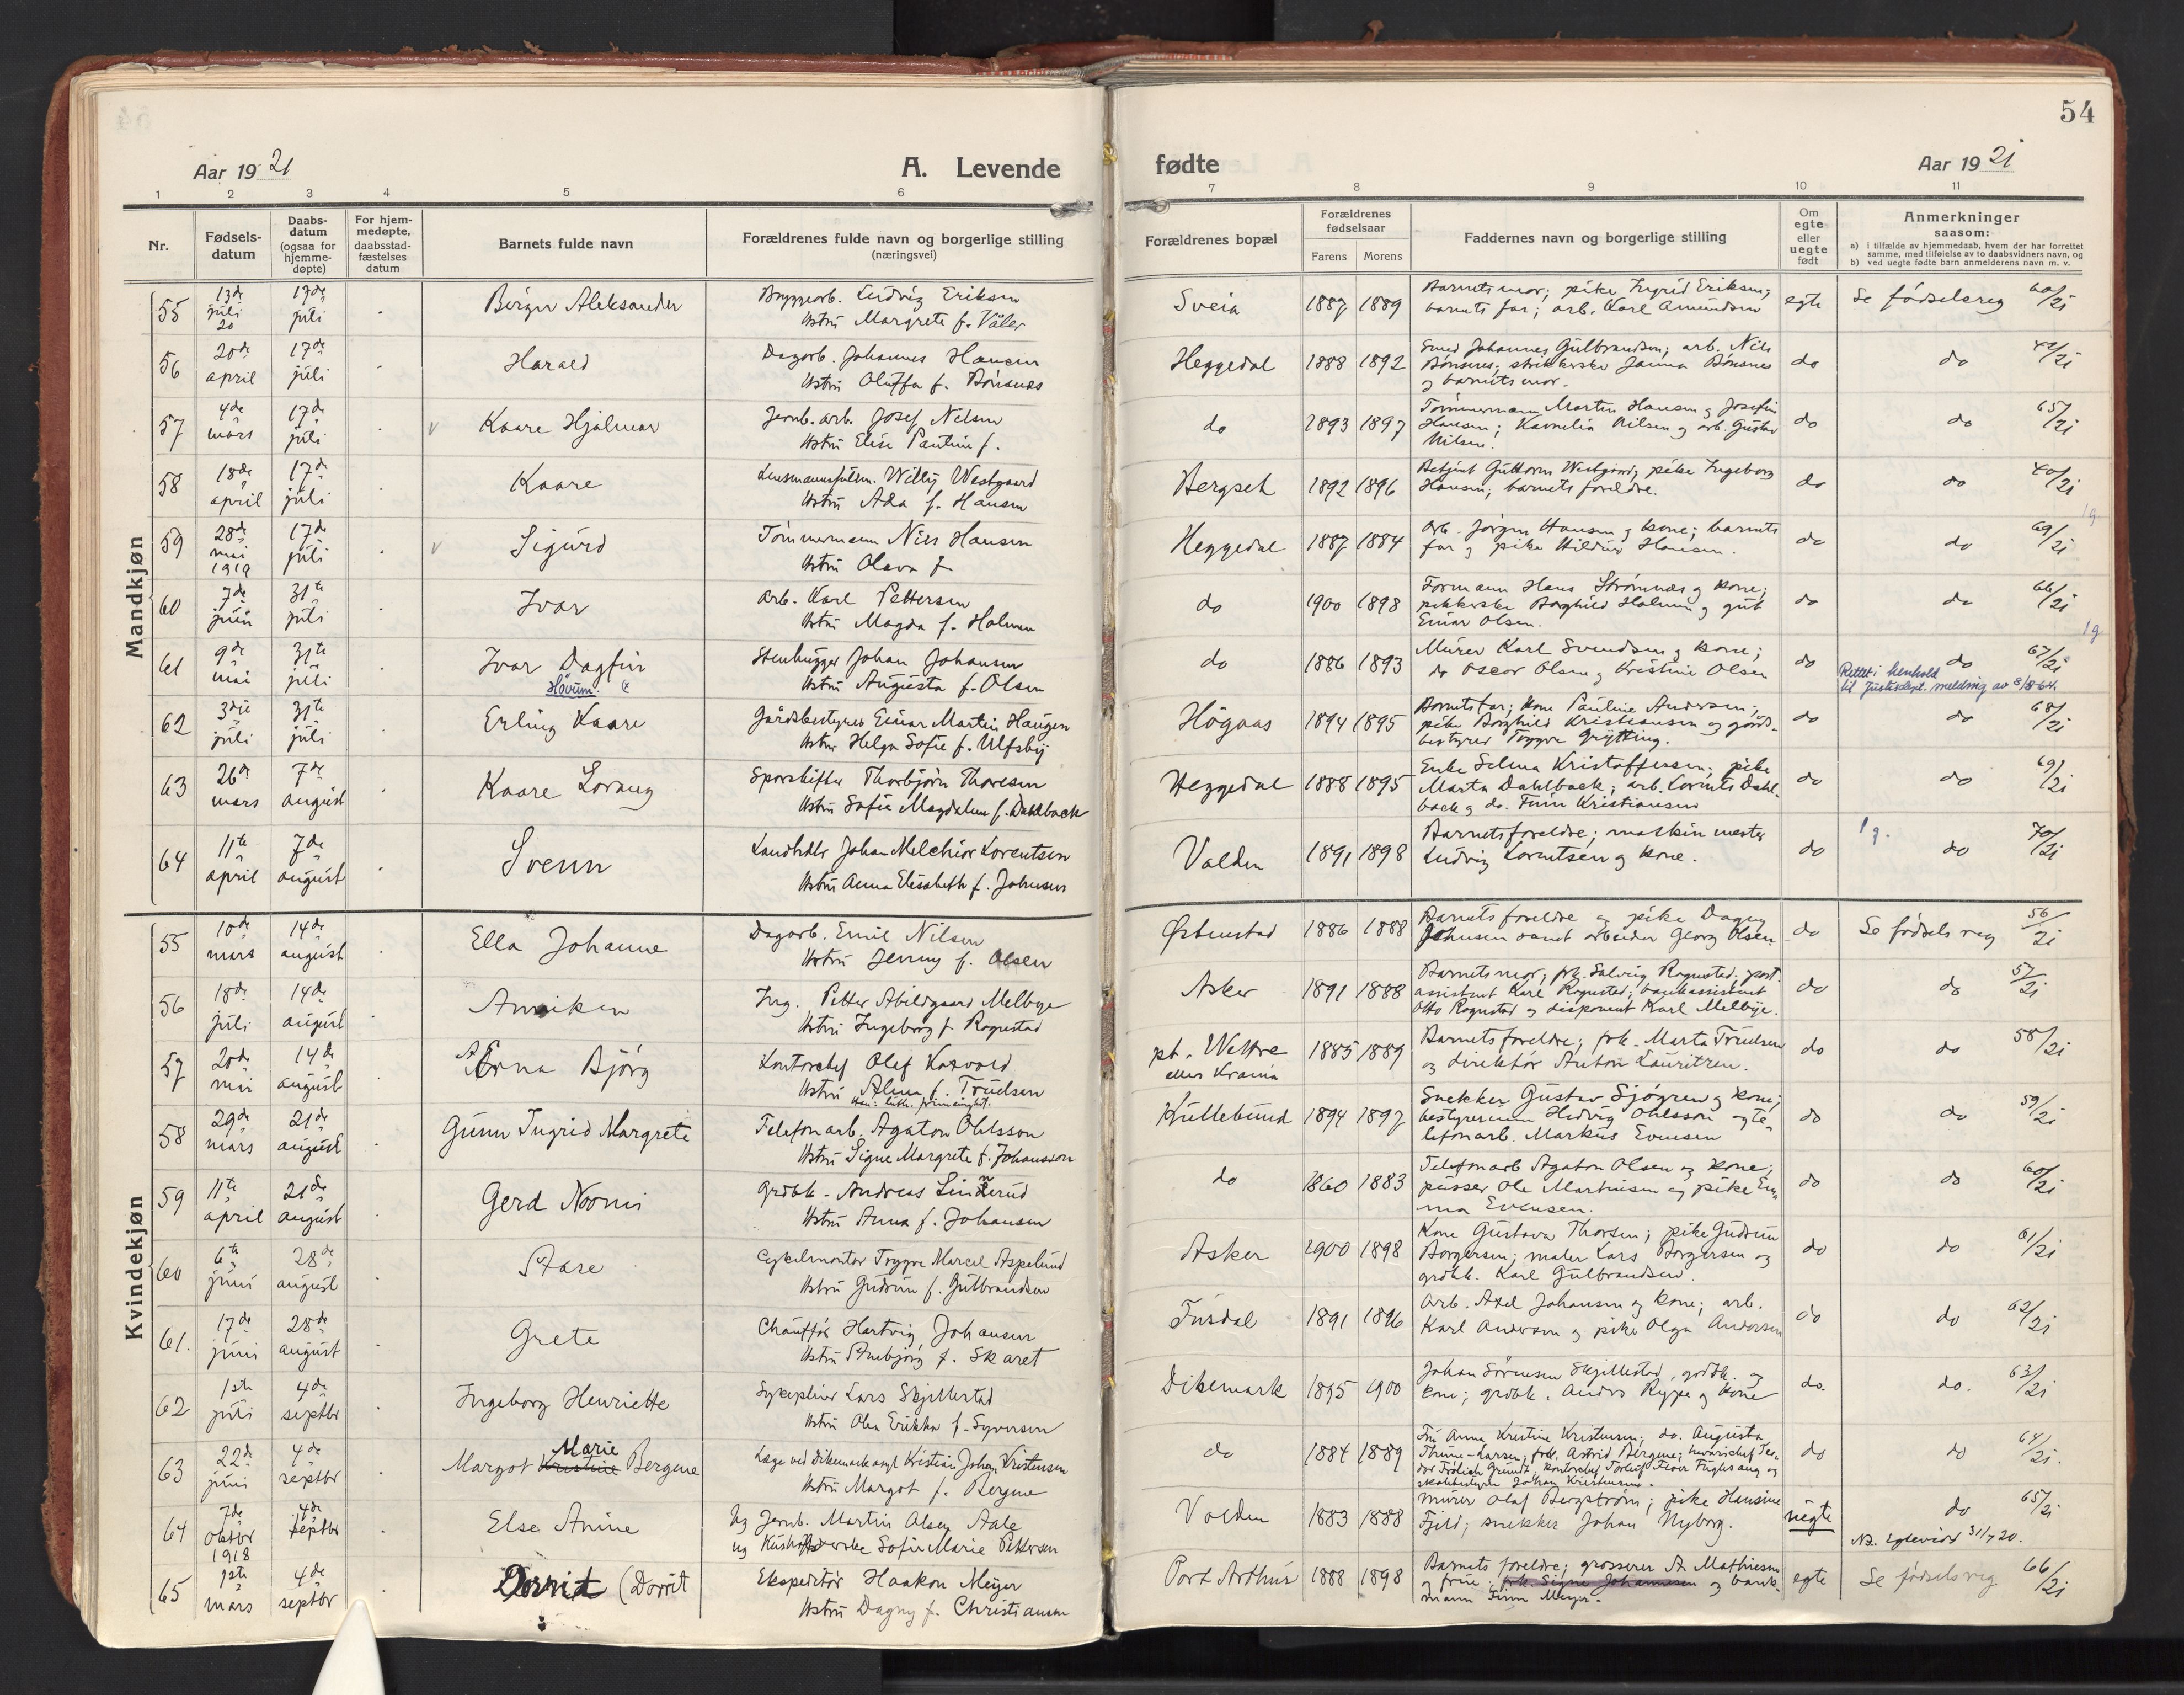 54
Aar 1921
A. Levende
fødte
Aar 1921
1 2 3 4 5 6 7 8 9 10 11
Nr.
Fødsels-
datum
Daabs-
datum
(ogsaa for
hjemme-
døpte)
For hjem-
medøpte,
daabsstad-
fæstelses
datum
Barnets fulde navn
Forældrenes fulde navn og borgerlige stilling
(næringsvei)
Forældrenes bopæl
Forældrenes
fødselsaar
Farens Morens
Faddernes navn og borgerlige stilling
Om
egte
eller
uegte
født
Anmerkninger
saasom:
a) i tilfælde av hjemmedaab, hvem der har forrettet
samme, med tilføielse av to daabsvidners navn, og
b) ved uegte fødte barn anmelderens navn m. v.
Mandkjøn
55 13de juli 20 17de juli Birger Aleksander Bryggearb. Ludvig Eriksen
Hstru Margrete f. Våler
Sveia 1887 1889 Barnets mor; pike Ingrid Eriksen;
barnets far; arb. Karl Amundsen
egte Se fødselsreg 60/21
56 20de april 17de juli Harald Dagarb. Johannes Hansen
Hstru Oluffa f. Bönsnes
Heggedal 1888 1892 Smed Johannes Gulbrandsen; arb. Nils
Bönsnes; strikkerske Janna Bönsnes
og barnets mor.
do do 42/21
57 4de mars 17de juli Kaare Hjalmar Jernb. arb. Josef Nilsen
Hstru Elise Pauline f.
do 1893 1897 Tömmermann Martin Hansen og Josefin
Hansen; Karnelia Nilsen og arb. Gustav
Nilsen.
do do 65/21
58 18de april 17de juli Kaare Lensmannsfulm. Willy Westgaard
Hstru Ada f. Hansen
Bergseh 1892 1896 Betjent Guttorm Westgård; pike Ingeborg
Hansen; barnets foreldre.
do do 40/21
59 28de mai 1919 17de juli Sigurd Tömmermann Nils Hansen
Hstru Olava f
Heggedal 1887 1884 Arb. Jörgen Hansen og kone; barnets
far og pike Hildur Hansen.
do do 69/21
60 7de juni 31te juli Ivar Arb. Karl Pettersen
Hstru Magda f. Holmen
do 1900 1898 Formann Hans Strömnæs og kone;
pikkerske Borghild Holmen og gut
Einar Olsen.
do do 66/21
61 9de mai 31te juli Ivar Dagfin
Hövum.
Stenhugger Johan Johansen
Hstru Augusta f. Olsen
do 1886 1893 Murer Karl Svendsen og kone;
do Oscar Olsen og Kristine Olsen
do do 67/21
Rettet i henhold
til Justisdept. melding av 8/8-64.
62 3die juli 31te juli Erling Kaare Gårdsbestyrer Einar Martin Haugen
Hstru Helga Sofie f. Ulfsby
Högaas 1894 1895 Barnets far; kone Pauline Andersen;
pike Borghild Kristiansen og gårds-
bestyrer Trygve Grytting.
do do 68/21
63 26de mars 7de august Kaare Lorang Sporskifter Thorbjörn Thoresen
Hstru Sofie Magdalene f. Dahlback
Heggedal 1888 1895 Enke Selma Kristoffersen; pike
Marta Dahlback; arb. Lorents Dahl-
back og do. Finn Kristiansen
do do 69/21
64 11te april 7de august Svenn Landhdlr Johan Melchior Lorentsen
Hstru Anna Elisabeth f. Johnsen
Valden 1891 1898 Barnets foreldre; maskinmester
Ludvig Lorentsen og kone.
do do 70/21
Kvindekjøn
55 10de mars 14de august Ella Johanne Dagarb. Emil Nilsen
Hstru Jenny f. Olsen
Östenstad 1886 1888 Barnets foreldre og pike Dagny
Johnsen samt arbeider Georg Olsen
do Se fødselsreg 56/21
56 18de juli 14de august Anniken Ing. Petter Abildgaard Melbye
Hstru Ingeborg f. Rognstad
Asker 1891 1888 Barnets mor; frk. Solveig Rognstad; post-
assistent Karl Rognstad; bankassistent
Otto Rognstad og disponent Karl Melbye.
do do 57/21
57 20de mai 14de august Erna Bjørg Kontorchef Olaf Korvald
Hstru Alma f. Trudsen
pt. Wettre
eller Krania
1885 1889 Barnets foreldre; frk. Marta Trudsen
og direktör Anton Lauritzen.
do do 58/21
58 29de mars 21de august Gunn Ingrid Margrete Telefonarb. Agaton Ohlsson
Hstru Signe Margrete f. Johansson
Kullebund 1894 1897 Snekker Gustav Sjögren og kone;
bestyrerinne Hedvig Ohlsson og te-
lefonarb. Markus Evensen
do do 59/21
59 11te april 21de august Gerd Noomi Grdbk. Andreas Linnerud
Hstru Anna f. Johansen
do 1860 1883 Telefonarb Agaton Olsen og kone;
pusser Ole Martinsen og pike Em-
ma Evensen.
do do 60/21
60 6te juni 28de august Aase Cykelmontør Trygve Marcel Aspelund
Hstru Gudrun f. Gulbrandsen
Asker 1900 1898 Kone Gustava Thorsen; pike Gudrun
Borgersen; maler Lars Borgersen og
grdbk. Karl Gulbrandsen.
do do 61/21
61. 17de juni 28de august Grete Chauffør Hartvig Johansen
Hstru Annbjörg f. Skaret
Fusdal 1891 1896 Arb. Axel Johansen og kone; arb.
Karl Andersen og pike Olga Andersen
do do 62/21
62 1ste juli 4de septbr Ingeborg Henriette Sykepleier Lars Skjellestad
Hstru Olea Erikka f. Syversen
Dikemark 1895 1900 Johan Sörensen Skjellestad, grdbk. og
kone; grdbk. Anders Rype og kone
do. do. 63/21
63 22de juni 4de septbr Margot Kristine Marie Bergene Læge ved Dikemark asyl Kristian Johan Kristensen
Hstru Margot f. Bergene
do 1884 1889 Fru Anna Kristine Kristensen; do. Augusta
Thrane-Larsen; frk. Astrid Bergene; kontorchef Torleif Fuglesang og
skolebestyrer Johan Kristensen.
do do 64/21.
64 7de oktbr 1918 4de septbr Else Anine Ug Jernb. Martin Olsen Aale
ug Sofie Marie Pettersen
Valden 1883 1888 Murer Olaf Bergström; pike Hansine
Fjeld; snekker Johan Nyborg.
uegte do 65/21
Nb. Egtevied 31/7 20.
65 1ste mars 4de septbr Dorrit (Dorrit Ekspeditör Haakon Meyer
Hstru Dagny f. Christiansen
Port Arthur 1888 1898 Barnets foreldre; grosserer A. Mathiesen
og frue; frk. Signe Johannesen og bank-
mann Finn Meyer.
egte Se fødselsreg. 66/21